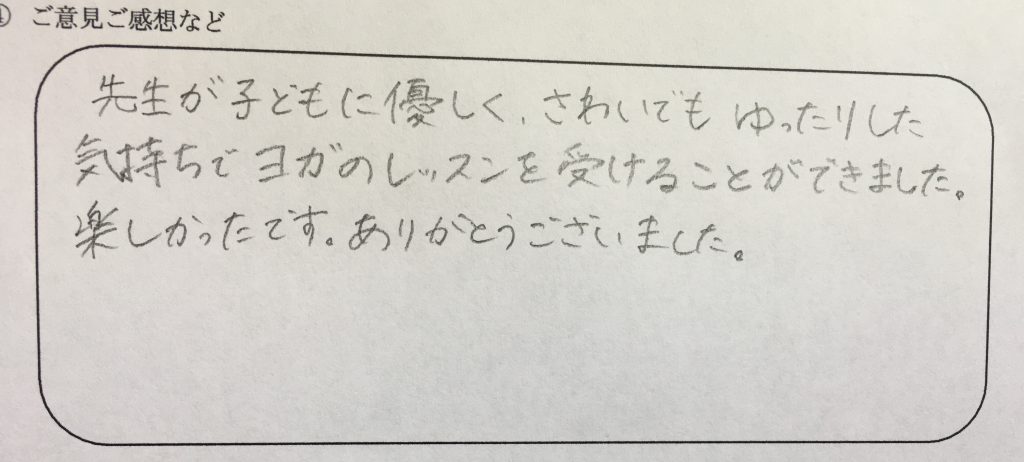 ④ ご意見ご感想など
先生が子どもに優しく、さわいでも ゆったりした
気持ちで ヨガのレッスンを受けることができました。
楽しかったです。ありがとうございました。